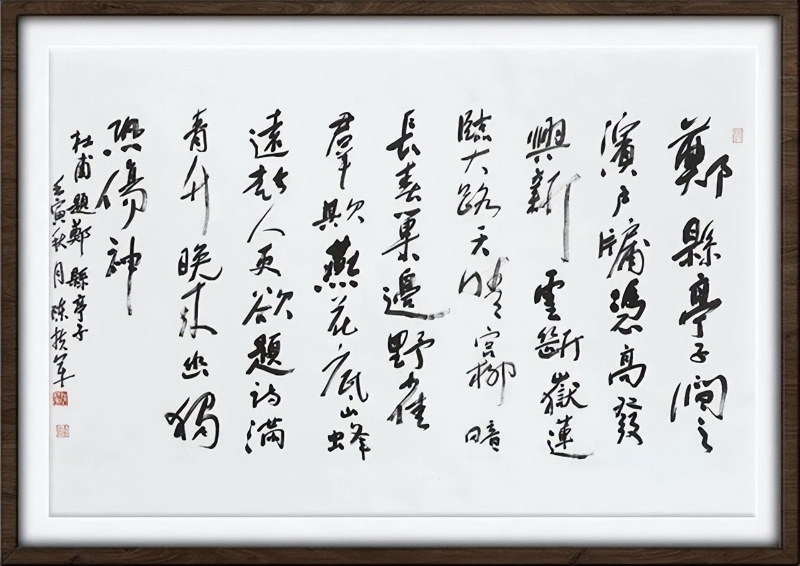 鄭縣亭子澗之
濱戶牖憑高發
興新雲斷嶽蓮
臨大路天晴宮柳暗
長春巢邊野雀
羣欺燕花底山蜂
遠趁人更欲題詩滿
青竹晚來幽獨
恐傷神
杜甫題鄭縣亭子
壬寅秋月陳軍